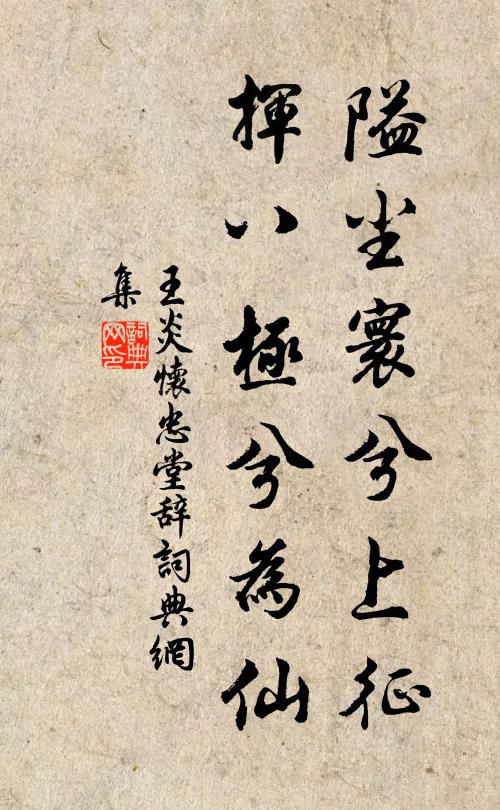 隘尘寰兮上征
揮八極兮為仙
王炎懷忠堂辞詞典網
集
詞典
网印